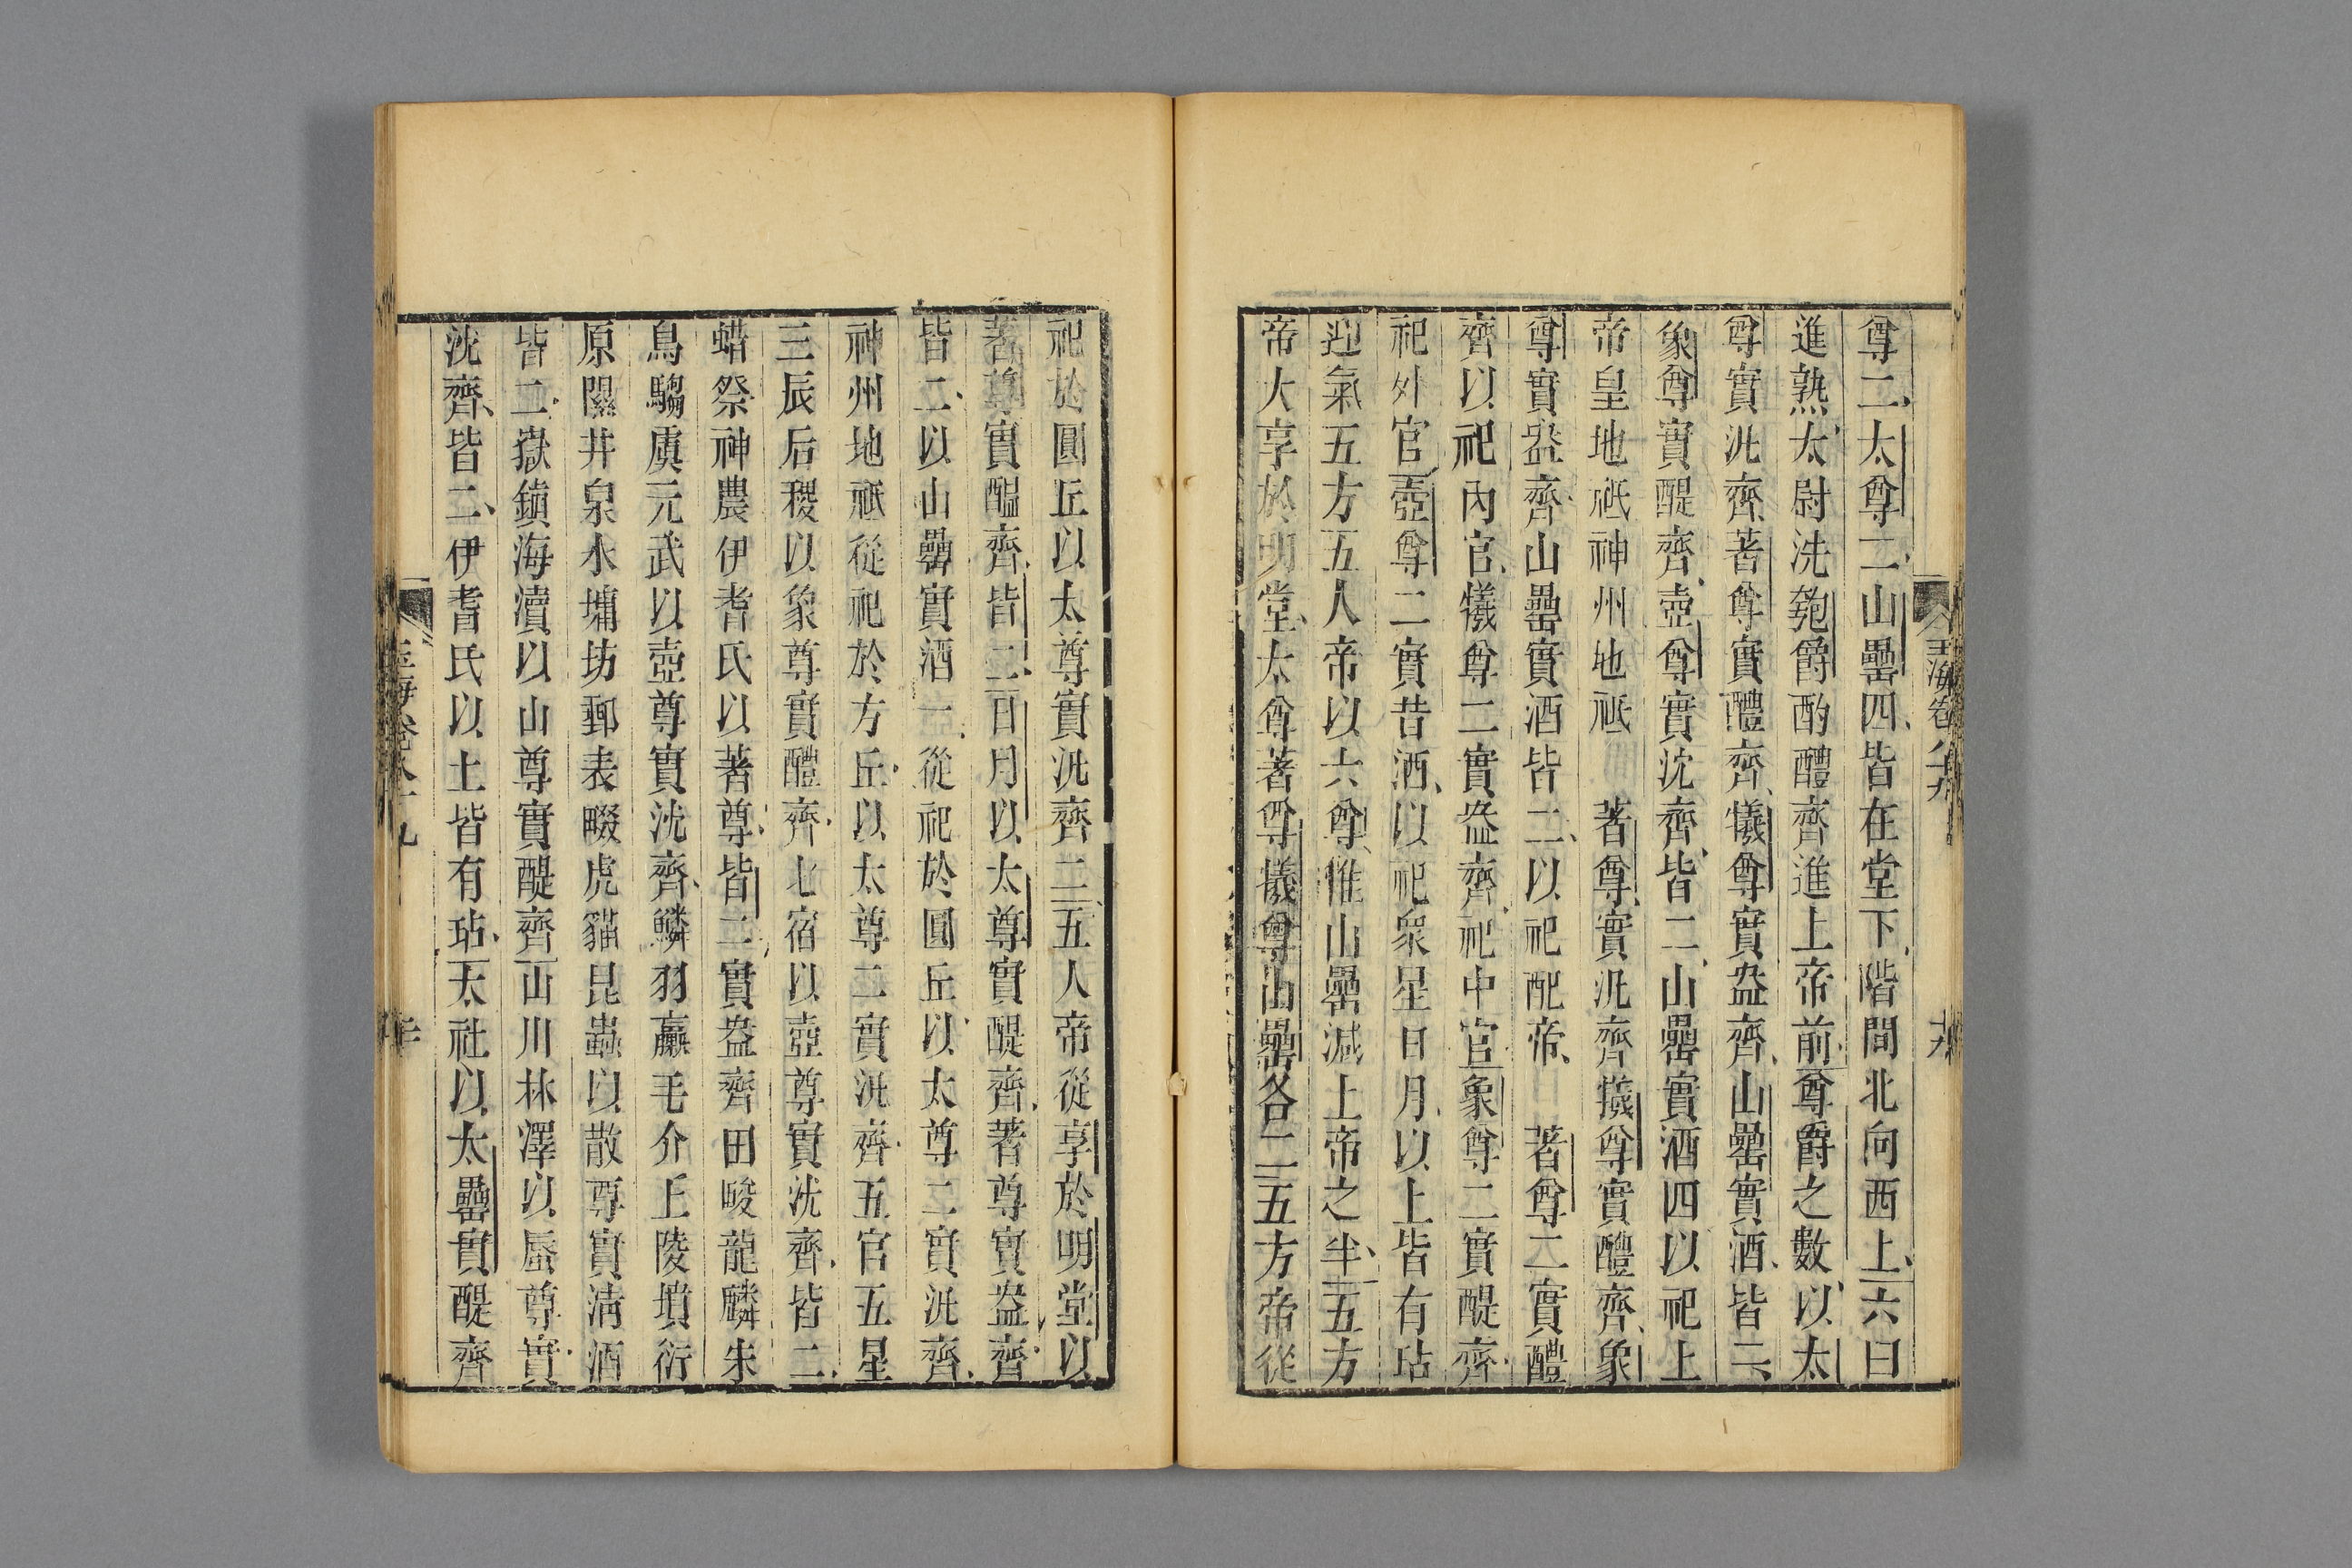 尊二太尊二山罍四皆在堂下階間北向西上六曰
進熟太尉洗匏爵酌醴齊進上帝前尊爵之數以太
尊實汎齊著尊實醴齊犧尊實盎齊山罍實酒皆二
象尊實醍齊壺尊實沈齊皆二山罍實酒四以祀上
帝皇地祇神州地祇 著尊實汎齊犧尊實醴齊象
尊實盎齊山罍實酒皆二以祀配帝 著尊二實醴
齊以祀內官犧尊二實盎齊祀中官象尊二實醍齊
祀外官壺尊二實昔酒以祀衆星日月以上皆有坫
迎氣五方五人帝以六尊惟山罍減上帝之半五方
帝大享於明堂太尊著尊犧尊山罍各二五方帝從
玉海卷八十九
十九
祀於圓丘以太尊實汎齊二五人帝從享於明堂以
著尊實醴齊皆二日月以太尊實醍齊著尊實盎齊
皆二以山罍實酒一從祀於圓丘以太尊二實汎齊
神州地祇從祀於方丘以太尊二實汎齊五官五星
三辰后稷以象尊實醴齊七宿以壺尊實沈齊皆二
蜡祭神農伊耆氏以著尊皆二實盎齊田畯龍麟朱
鳥騶虞元武以壺尊實沈齊鱗羽臝毛介丘陵墳衍
原隰井泉水墉坊郵表畷虎貓昆蟲以散尊實清酒
皆二嶽鎮海瀆以山尊實醍齊山川林澤以蜃尊實
沈齊皆二伊耆氏以上皆有坫太社以太罍實醍齊
玉海卷八十九
二十